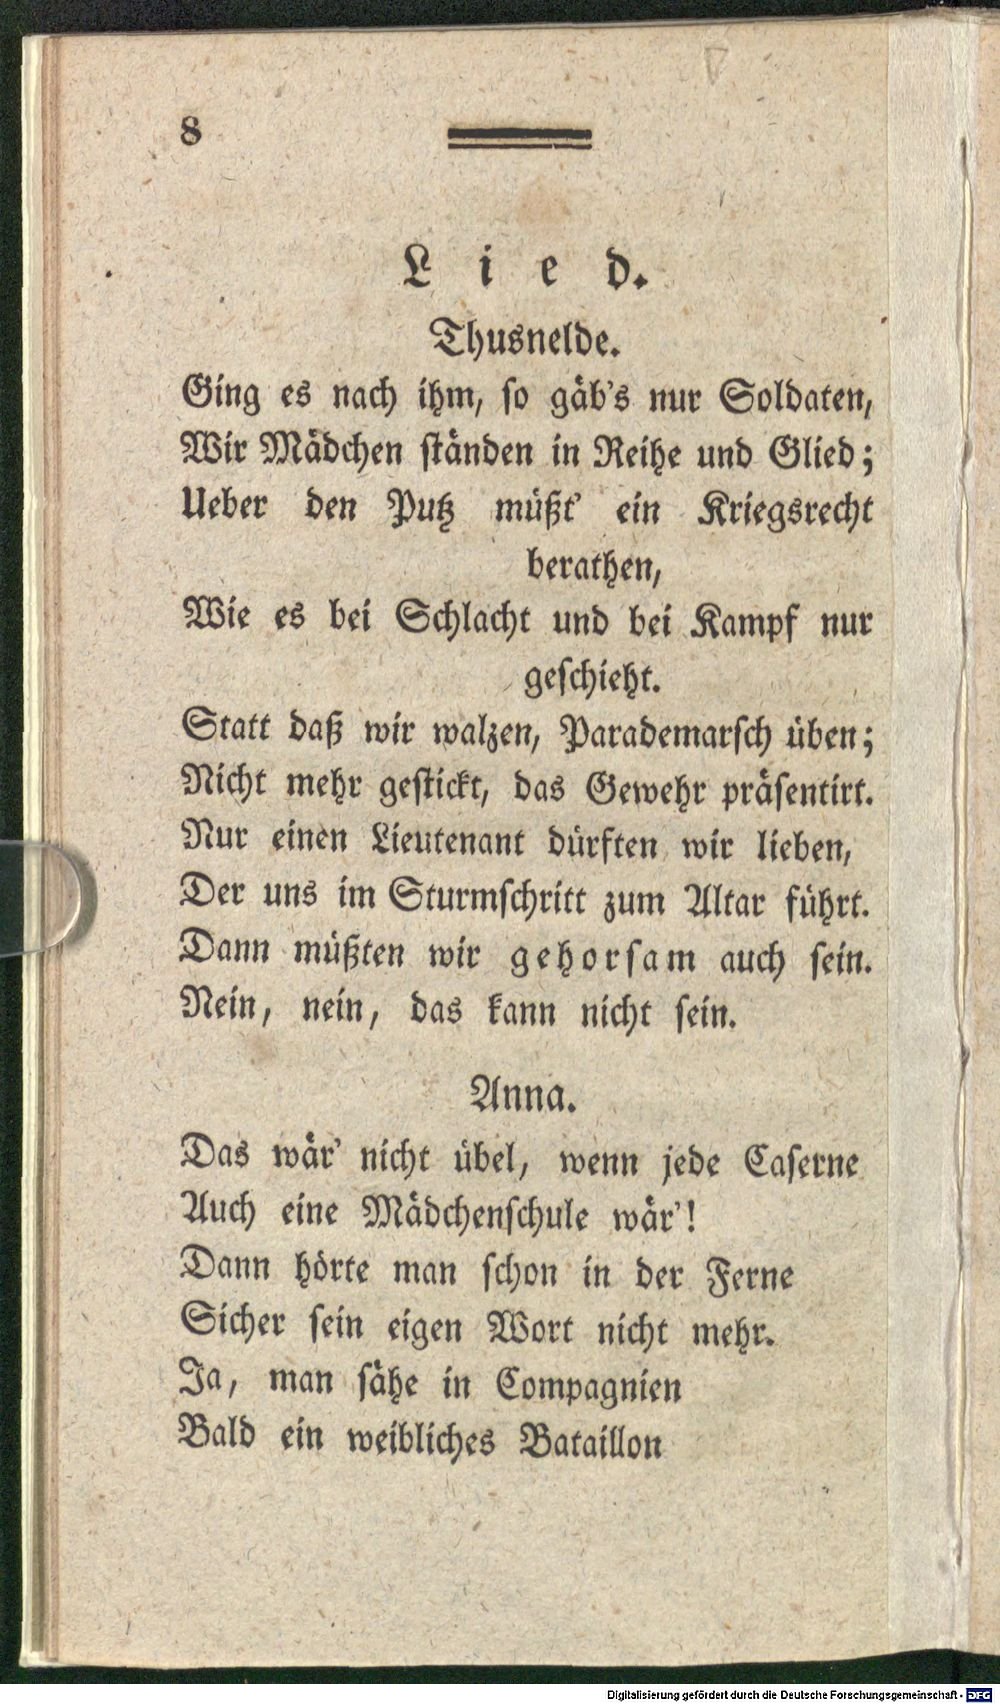 8
Lied.
Thusnelde.
Ging es nach ihm, so gäb's nur Soldaten,
Wir Mädchen ständen in Reihe und Glied;
Ueber den Putz müßt' ein Kriegsrecht
berathen,
Wie es bei Schlacht und bei Kampf nur
geschieht.
Statt daß wir walzen, Parademarsch üben;
Nicht mehr gestickt, das Gewehr präsentirt.
Nur einen Lieutenant dürften wir lieben,
Der uns im Sturmschritt zum Altar führt.
Dann müßten wir gehorsam auch sein.
Nein, nein, das kann nicht sein.
Anna.
Das wär' nicht übel, wenn jede Caserne
Auch eine Mädchenschule wär'!
Dann hörte man schon in der Ferne
Sicher sein eigen Wort nicht mehr.
Ja, man sähe in Compagnien
Bald ein weibliches Bataillon
Digitalisierung gefördert durch die Deutsche Forschungsgemeinschaft - DFG